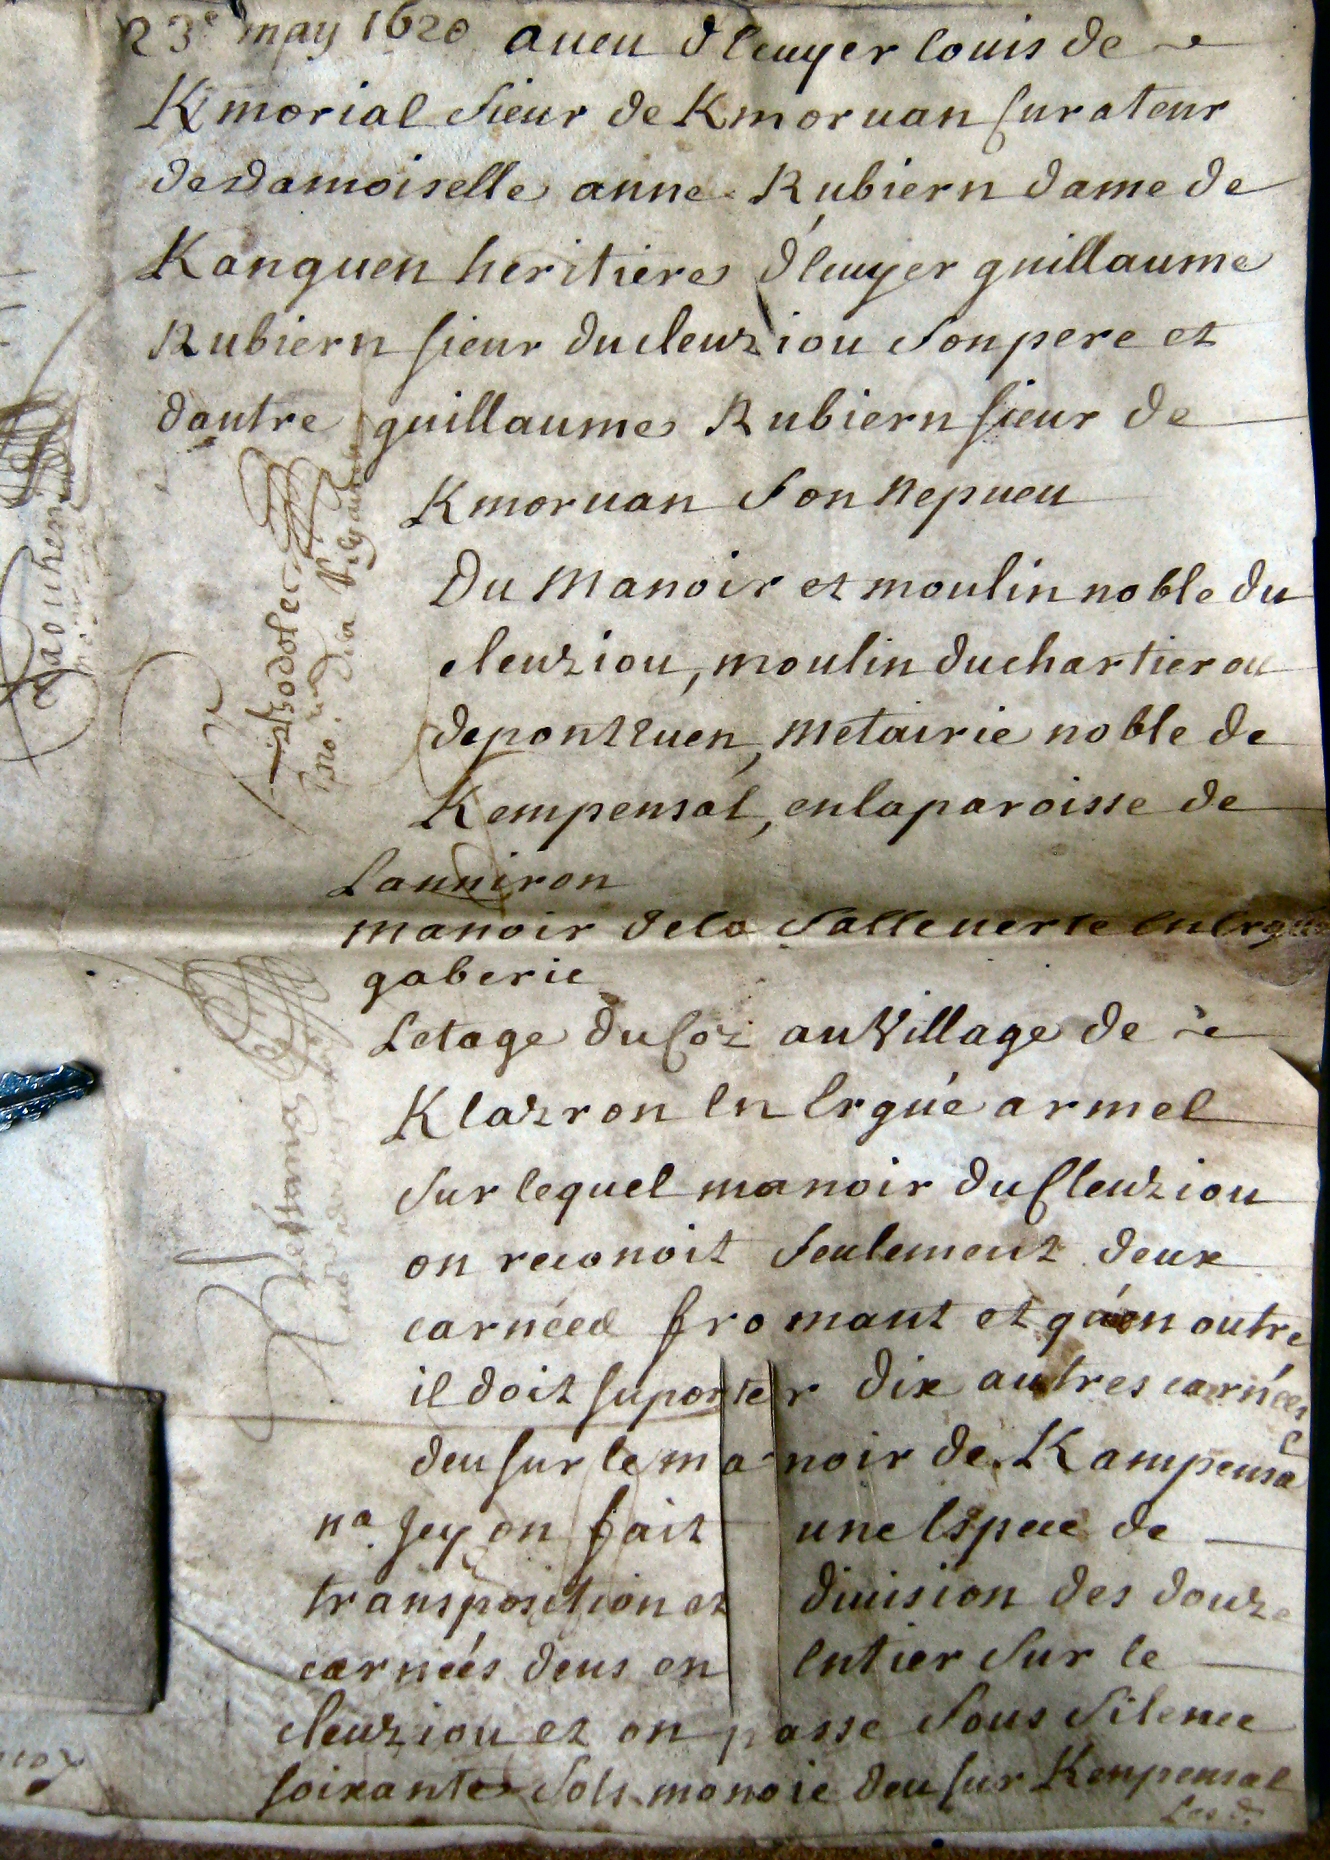 23e may 1620 aueu d'lcuyer louis de
Kmorial sieur de Kmoruan Curateur
de damoiselle anne Rubiern dame de
Kanguen heritiere d'lcuyer guillaume
Rubiern sieur du cleuziou son pere et
dautre guillaume Rubiern sieur de
Kmoruan son nepueu
Du Manoir et moulin noble du
cleuziou, moulin du chartier ou
de pont zuen, Metairie noble de
Kempensal, en la paroisse de
Lanniron
manoir de la Salle uerte en Ergue
gaberie
Letage du Coz au Village de
Klazron En Ergué armel
Sur lequel manoir du Cleuziou
on reconoit seulement deux
carnées fromant et qu'en outre
il doit suporter dix autres carnées
deu sur le manoir de Kampensal
na. Jcy on fait une Espece de
transposition et diuision des douze
carneés deus en Entier sur le
cleuziou et on passe sous silence
soixante sols monoie deu sur Kenpensal